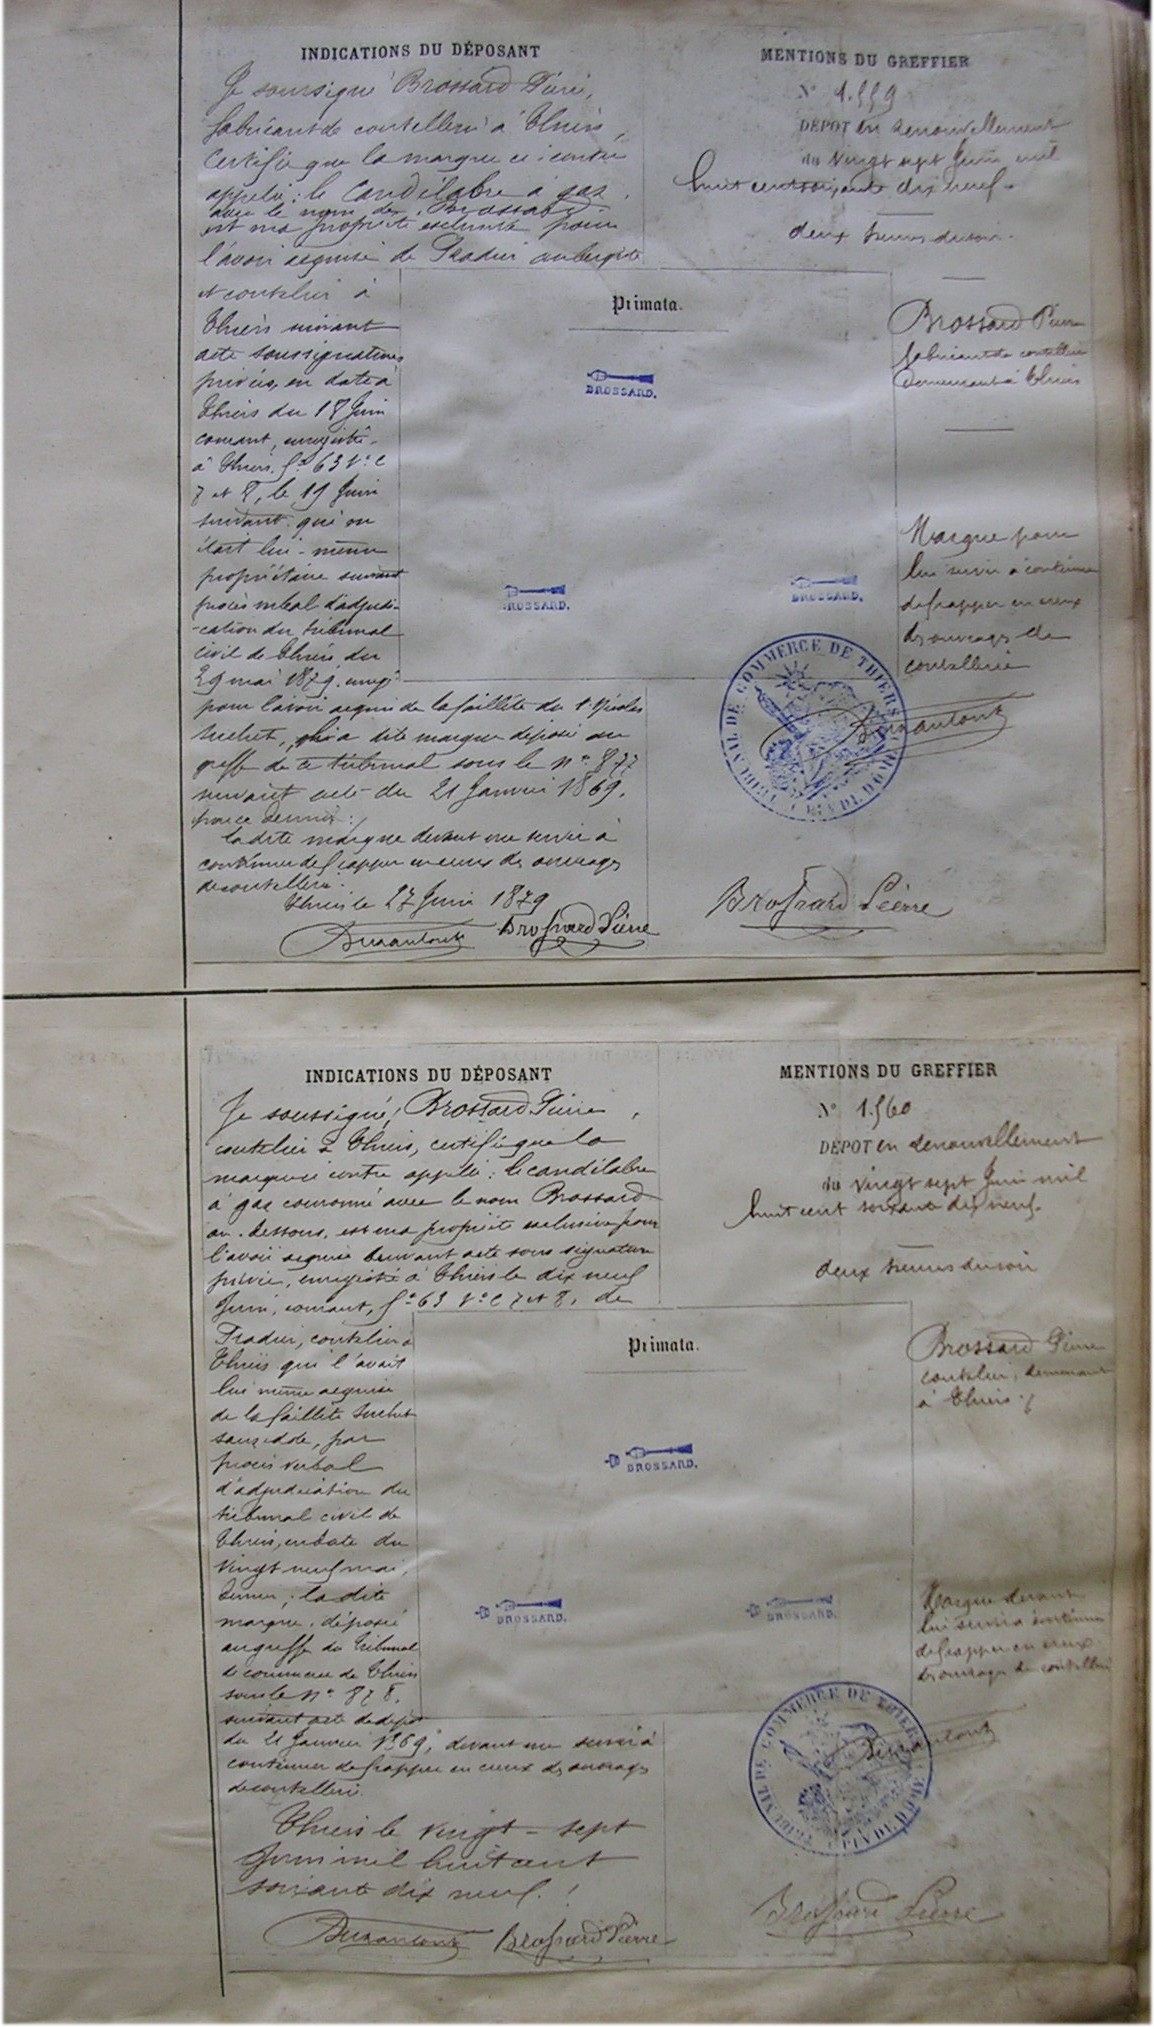 INDICATIONS DU DÉPOSANT
Je soussigné Brossard Pierre,
fabricant de coutellerie à Thiers,
Certifie que la marque ci-contre
appelée : le Candélabre à gas
avec le nom de Brossard
est ma propriété exclusive pour
l'avoir acquise de Pradier aubergiste
et coutelier à
Thiers suivant
acte sous signatures
privées, en date à
Thiers du 18 Juin
courant, enregistré
à Thiers fo 63 Vo C
7 et 8, le 19 Juin
suivant qui en
était lui-même
propriétaire suivant
procès verbal d'adjudi-
-cation du tribunal
civil de Thiers du
29 mai 1879. enregé
pour l'avoir acquise de la faillite du Sr Nicolas
Suchet, dite marque déposée au
greffe de ce tribunal sous le no 877
suivant acte du 21 Janvier 1869.
par ce dernier :
la dite marque devant me servir à
continuer de frapper en creux des ouvrages
de coutellerie.
Thiers le 27 Juin 1879
Brossard Pierre
MENTIONS DU GREFFIER
No 1.559
DÉPOT en renouvellement
du vingt sept Juin mil
huit cent soixante dix neuf.
deux heures du soir.
Primata.
BROSSARD.
BROSSARD.
BROSSARD.
Brossard Pierre
fabricant de coutellerie
demeurant à Thiers
Marque pour
lui servir à continuer
de frapper en creux
des ouvrages de
coutellerie
TRIBUNAL DE COMMERCE DE THIERS
PUY DE DOME
Brossard Pierre
INDICATIONS DU DÉPOSANT
Je soussigné, Brossard Pierre,
coutelier à Thiers, certifie que la
marque ci contre appelée : le candélabre
à gas couronné avec le nom Brossard
au-dessous, est ma propriété exclusive pour
l'avoir acquise suivant acte sous signature
privée, enregistré à Thiers le dix neuf
Juin, courant, fo 63 Vo C 7 et 8, de
Pradier, coutelier à
Thiers qui l'avait
lui même acquise
de la faillite Suchet
par
procès verbal
d'adjudication du
tribunal civil de
Thiers, en date du
vingt neuf mai,
dernier ; la dite
marque, déposée
au greffe du Tribunal
de commerce de Thiers
sous le no 878,
suivant acte de dépôt
du 21 Janvier 1869, devant me servir à
continuer de frapper en creux des ouvrages
de coutellerie.
Thiers le vingt-sept
Juin mil huit cent
soixante dix neuf. !
Brossard Pierre
MENTIONS DU GREFFIER
No 1.560
DÉPOT en renouvellement
du vingt sept Juin mil
huit cent soixante dix neuf.
deux heures du soir
Primata.
BROSSARD.
BROSSARD.
BROSSARD.
Brossard Pierre
coutelier, demeurant
à Thiers
Marque devant
lui servir à continuer
de frapper en creux
des ouvrages de coutellerie
TRIBUNAL DE COMMERCE DE THIERS
PUY DE DOME
Brossard Pierre